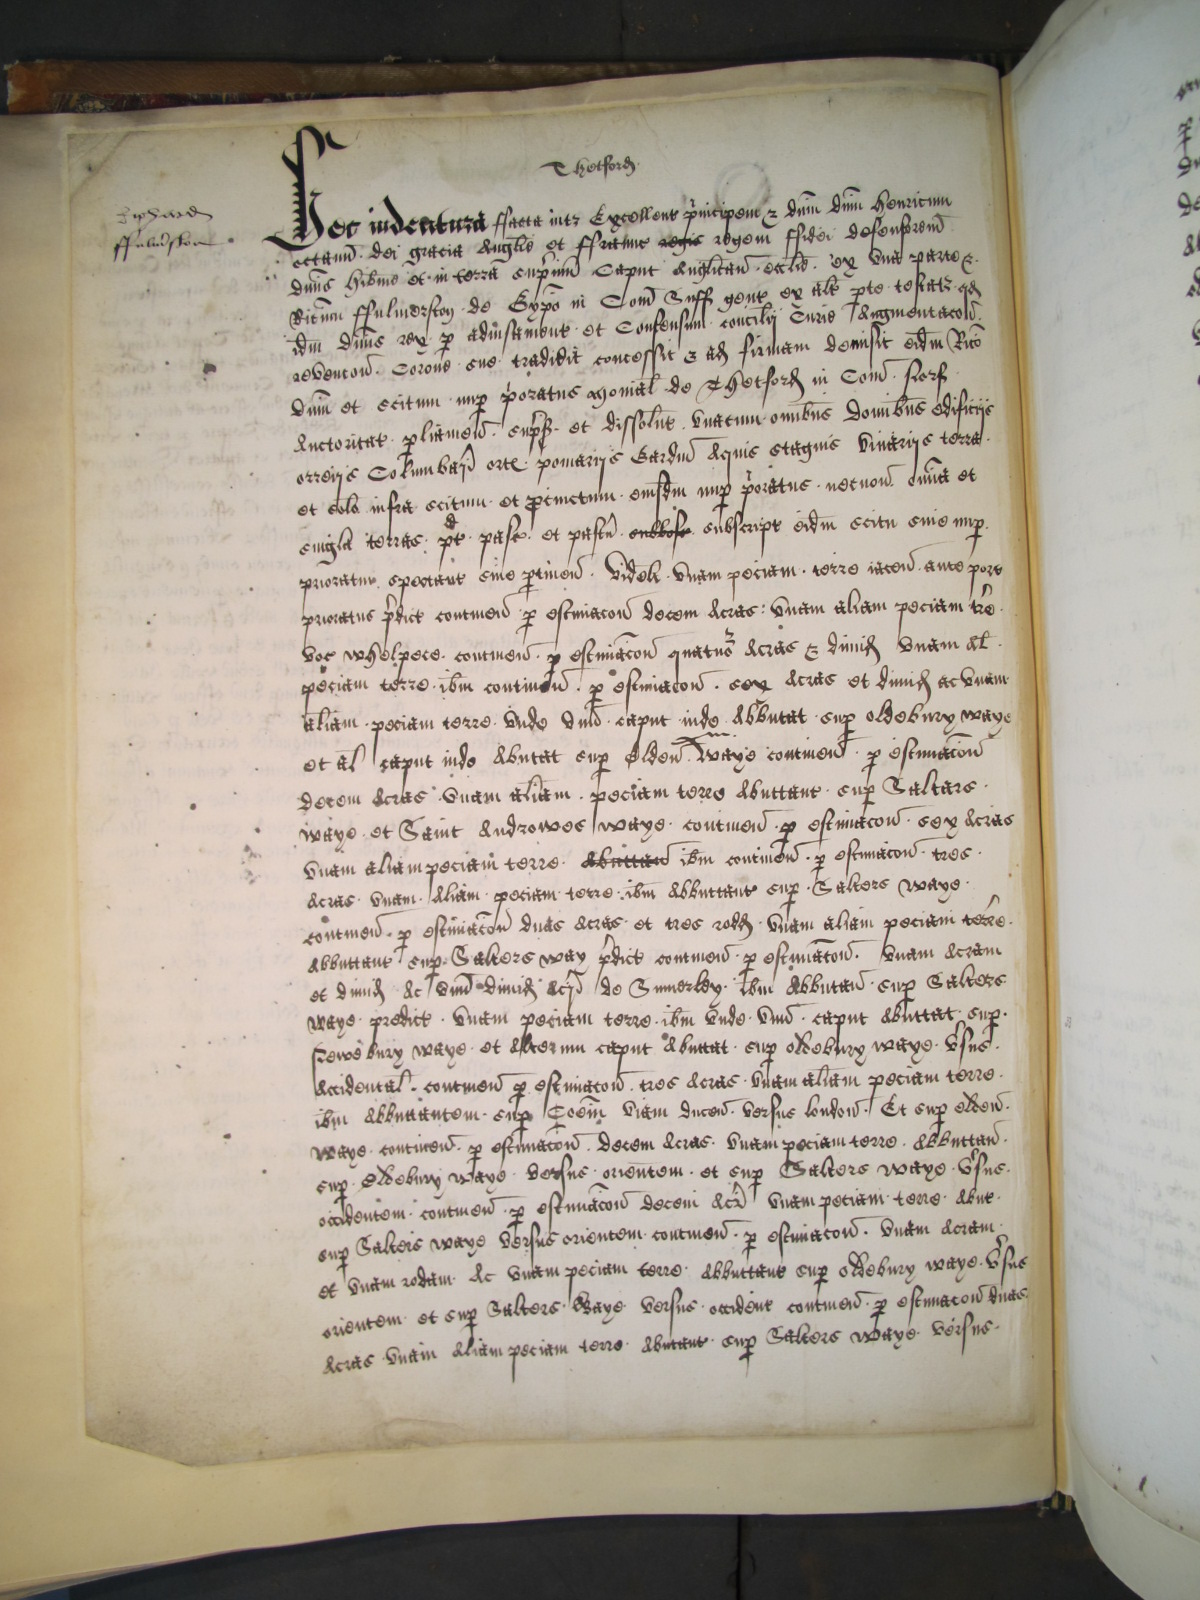 Thetford
Richard
ffulmerston
Hec indentura ffacta int Excellent principem & dnm dnm Henricum
octauu dei gracia Anglie et ffrancie regis regem ffidei defensorem
dnm Hibnie et in terra supmu Caput Anglican ecclie ex una parte &
Ricm ffulmerston de Gypo in Com Suff gent ex alt pte testat qd
idm dns rex p aduisament et Consensum concilij Curie Augmentacon
revencon Corone sue tradidit concessit & ad firmam demisit eidm Rico
dum et scitum nup prioratus monial de Thetford in Com Norf
Auctoritat pliamen supss et dissolut vnacum omibus domibus edificijs
orreijs Columbarijs ort pomarijs Gardin Aquis stagnis vinarijs terra
et solo infra scitum et pcinctum eiusdm nup prioratus necnon omia et
singla terras pt past et pastur subscript eidm scitu siue nup
prioratui spectant siue ptinen videlt vnam peciam terre iacen ante port
prioratus pdict continen p estimacon decem Acras vnam aliam peciam tre
voc Whelpece continen p estimacon quatuor Acras & dimid vnam al
peciam terre ibm continen p estimacon sex Acras et dimid ac vnam
aliam peciam terre vnde vnu caput inde Abbutat sup oldebury waye
et al caput inde Abutat sup Elden waye continen p estimacon
decem Acras vnam aliam peciam terre Abuttant sup Saltars
waye et Saint Androwes waye continen p estimacon sex Acras
vnam aliam peciam terre Abuttan ibm continen p estimacon tres
Acras vnam Aliam peciam terre ibm Abbuttant sup Salters waye
continen p estimacon duas Acras et tres rod vnam aliam peciam terre
Abbuttant sup Salters way pdict continen p estimacon vnam Acram
et dimid Ac vnu dimid Acr de ibm Abbutan sup Salters
waye predict vnam peciam terre ibm vnde vnu caput Abuttat sup
bury waye et Alterum caput Abuttat sup oldebury waye vsus
Accidental continen p estimacon tres Acras vnam aliam peciam terre
ibm Abbuttantem sup Coem viam ducen versus london Et sup elden
waye continen p estimacon decem Acras vnam peciam terre Abbuttan
sup oldebury waye versus orientem et sup Salters waye vsus
occidentem continen p estimacon decem Acr vnam peciam terre Abut
sup Salters waye versus orientem continen p estimacon vnam Acram
et vnam rodam Ac vnam peciam terre Abbuttant sup oldebury waye vsus
orientem et sup Salters Waye versus occident continen p estimacon duas
Acras vnam Aliam peciam terre Abuttant sup Salters waye versus